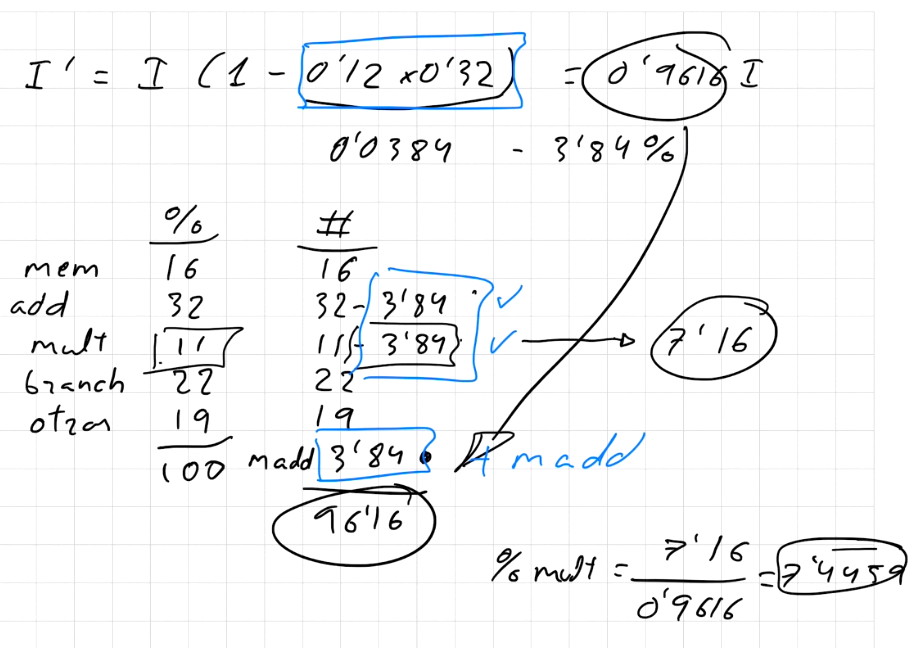 I' = I (1 - 0'12 x0'32) = 0'9616 I
0'0384 - 3'84%
% #
mem 16 16
add 32 32- 3'84
mult 11 11- 3'84 7'16
branch 22 22
otros 19 19
100 madd 3'84 # madd
96'16
% mult = 7'16 / 0'9616 = 7'4459